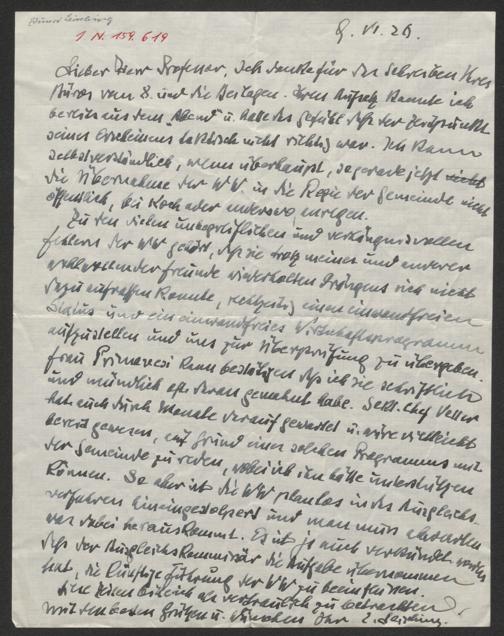 I N. 159.619
9. VI. 26.
Lieber Herr Professor, ich danke für das Schreiben Ihres
Büros vom 8. und die Beilagen. Ihren Aufsatz kannte ich
bereits aus dem Abend u. hatte das Gefühl daß der Zeitpunkt
seines Erscheinens taktisch nicht richtig war. Ich kann
selbstverständlich, wenn überhaupt, so gerade jetzt nicht
die Übernahme der WW in die Regie der Gemeinde nicht
öffentlich, bei Koch oder anderswo, anregen.
Zu den vielen unbegreiflichen und verhängnisvollen
Fehlern der WW gehört, daß sie trotz meines und anderer
wohlwollender Freunde wiederholten Drängens sich nicht
dazu aufraffen konnte, rechtzeitig einen einwandfreien
Status und ein einwandfreies Wirtschaftsprogramm
aufzustellen und uns zur Überprüfung zu übergeben.
Frau Primavesi kann bestätigen daß ich sie schriftlich
und mündlich oft daran gemahnt habe. Sekt. Chef Vetter
hat auch durch Monate darauf gewartet u. wäre vielleicht
bereit gewesen, auf Grund eines solchen Programms mit
der Gemeinde zu reden, wobei ich ihn hätte unterstützen
können. So aber ist die WW planlos in das Ausgleichs-
verfahren hineingestolpert und man muss abwarten
was dabei herauskommt. Es ist ja auch verkündet worden
daß der Ausgleichskommissär die Aufgabe übernommen
hat, die künftige Führung der WW zu beeinflussen.
als vertraulich zu betrachten
mit den besten Grüßen u. Wünschen Ihr